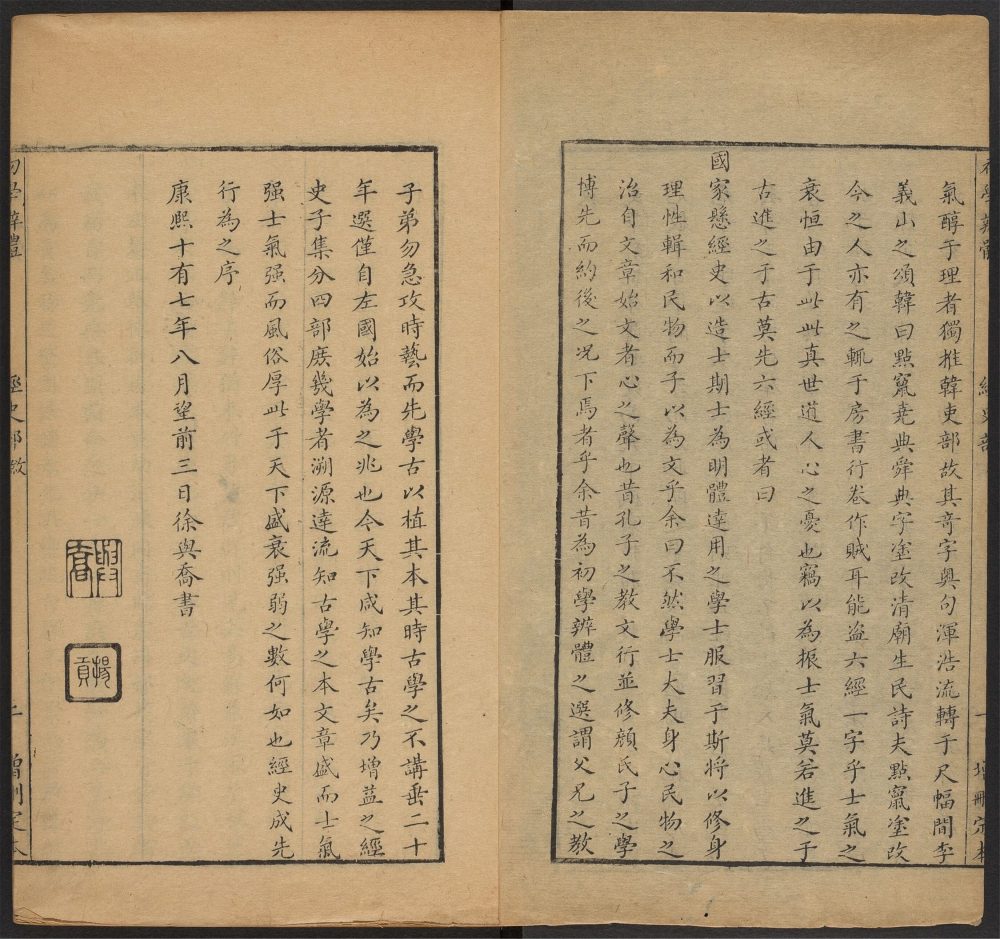 初學辨體
經史部
一
增刪定本
氣醇于理者獨推韓吏部故其奇字奥句渾浩流轉于尺幅間李
義山之頌韓曰點竄堯典舜典字塗改清廟生民詩夫點竄塗改
今之人亦有之輒于房書行卷作賊耳能盗六經一字乎士氣之
衰恒由于此此真世道人心之憂也竊以為振士氣莫若進之于
古進之于古莫先六經或者曰
國家懸經史以造士期士為明體達用之學士服習于斯將以修身
理性輯和民物而子以為文乎余曰不然學士大夫身心民物之
治自文章始文者心之聲也昔孔子之教文行並修顔氏子之學
博先而約後之况下焉者乎余昔為初學辨體之選謂父兄之教
子弟勿急攻時藝而先學古以植其本其時古學之不講垂二十
年選僅自左國始以為之兆也今天下咸知學古矣乃增益之經
史子集分四部庶幾學者溯源達流知古學之本文章盛而士氣
强士氣强而風俗厚此于天下盛衰强弱之數何如也經史成先
行為之序
康熙十有七年八月望前三日徐與喬書
與喬
揚貢
初學辨體
經史部敘
二
增刪定本